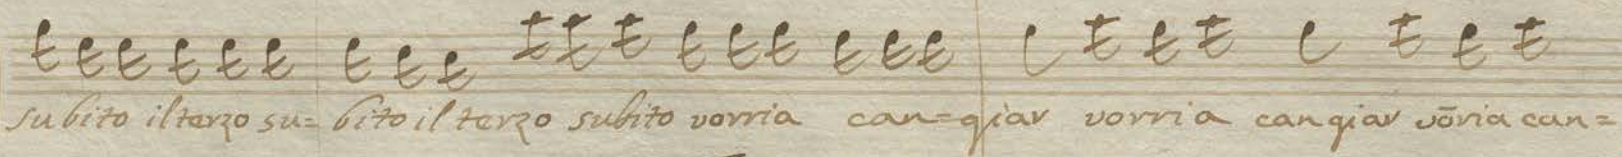 subito il terzo su= bito il terzo subito vorria can=giar vorria cangiar vōria can=